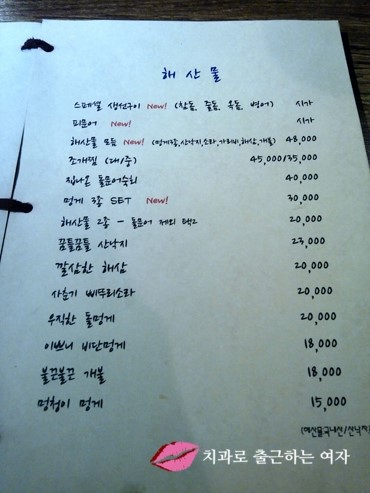 해 산 물
스페셜 생선구이 New! (참돔, 줄돔, 옥돔, 병어) 시가
피문어 New! 시가
해산물 모듬 New! (멍게3종,산낙지,소라,가리비,해삼,개불) 48,000
조개찜 (대/중) 45,000/35,000
집나온 돌문어숙회 40,000
멍게 3종 SET New! 30,000
해산물 2종 - 돌문어 제외 택2 20,000
꿈틀꿈틀 산낙지 23,000
깔쌈한 해삼 20,000
사춘기 삐뚜리소라 20,000
우직한 돌멍게 20,000
이쁘니 비단멍게 18,000
불끈불끈 개불 18,000
멍청이 멍게 15,000
치과로 출근하는 여자